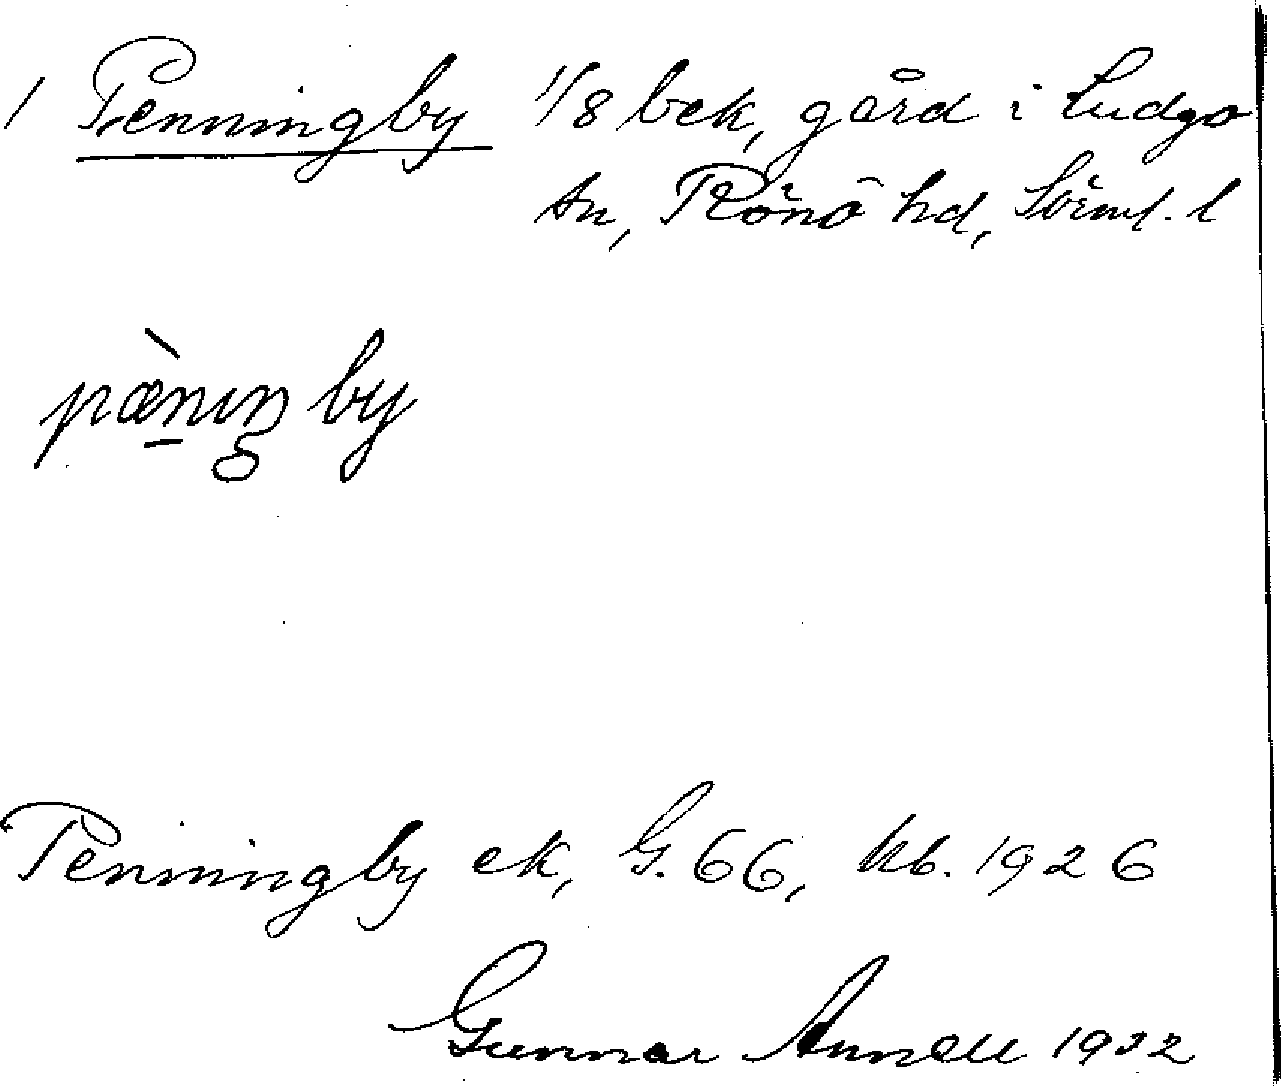 1 Penningby 1/8 bek, gård i Ludgo
sn, Rönö hd, Sörml. l
pæ̀nıŋ by
Penningby ek, G. 66, kb. 1926
Gunnar Annell 1932